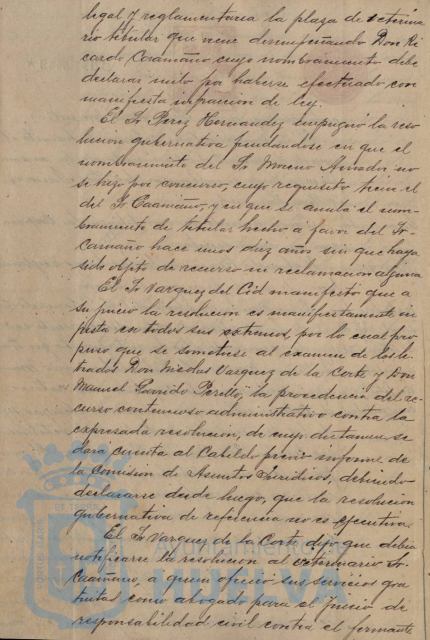 legal y reglamentaria la plaza de veterina
rio titular que viene desempeñando Don Ri
cardo Caamaño cuyo nombramiento debe
declarar nulo por haberse efectuado con
manifiesta infraccion de ley.
El Sr Perez Hernandez impugnó la reso
lucion gubernativa fundandose en que el
nombramiento del Sr Moreno Amador no
se hizo por concurso, cuyo requisito tiene el
del Sr Caamaño, y en que se anula el nom-
bramiento de titular hecho a favor del Sr
Caamaño hace unos diez años sin que haya
sido objeto de recurso ni reclamacion alguna
El Sr Vazquez del Cid manifestó que a
su juicio la resolucion es manifiestamente in
justa en todos sus extremos, por lo cual pro
puso que se sometiese al examen de los le
trados Don Nicolas Vazquez de la Corte y Don
Manuel Garrido Perelló, la procedencia del re
curso contencioso administrativo contra la
expresada resolucion, de cuyo dictamen se
dará cuenta al Cabildo previo informe de
la Comision de Asuntos Juridicos, debiendo
declararse desde luego, que la resolucion
gubernativa de referencia no es ejecutiva.
El Sr Vazquez de la Corte dijo que debia
notificarse la resolucion al veterinario Sr
Caamaño, a quien ofreció sus servicios gra
tuitos como abogado para el juicio de
responsabilidad civil contra el firmante
Ayuntamiento de
HUELVA